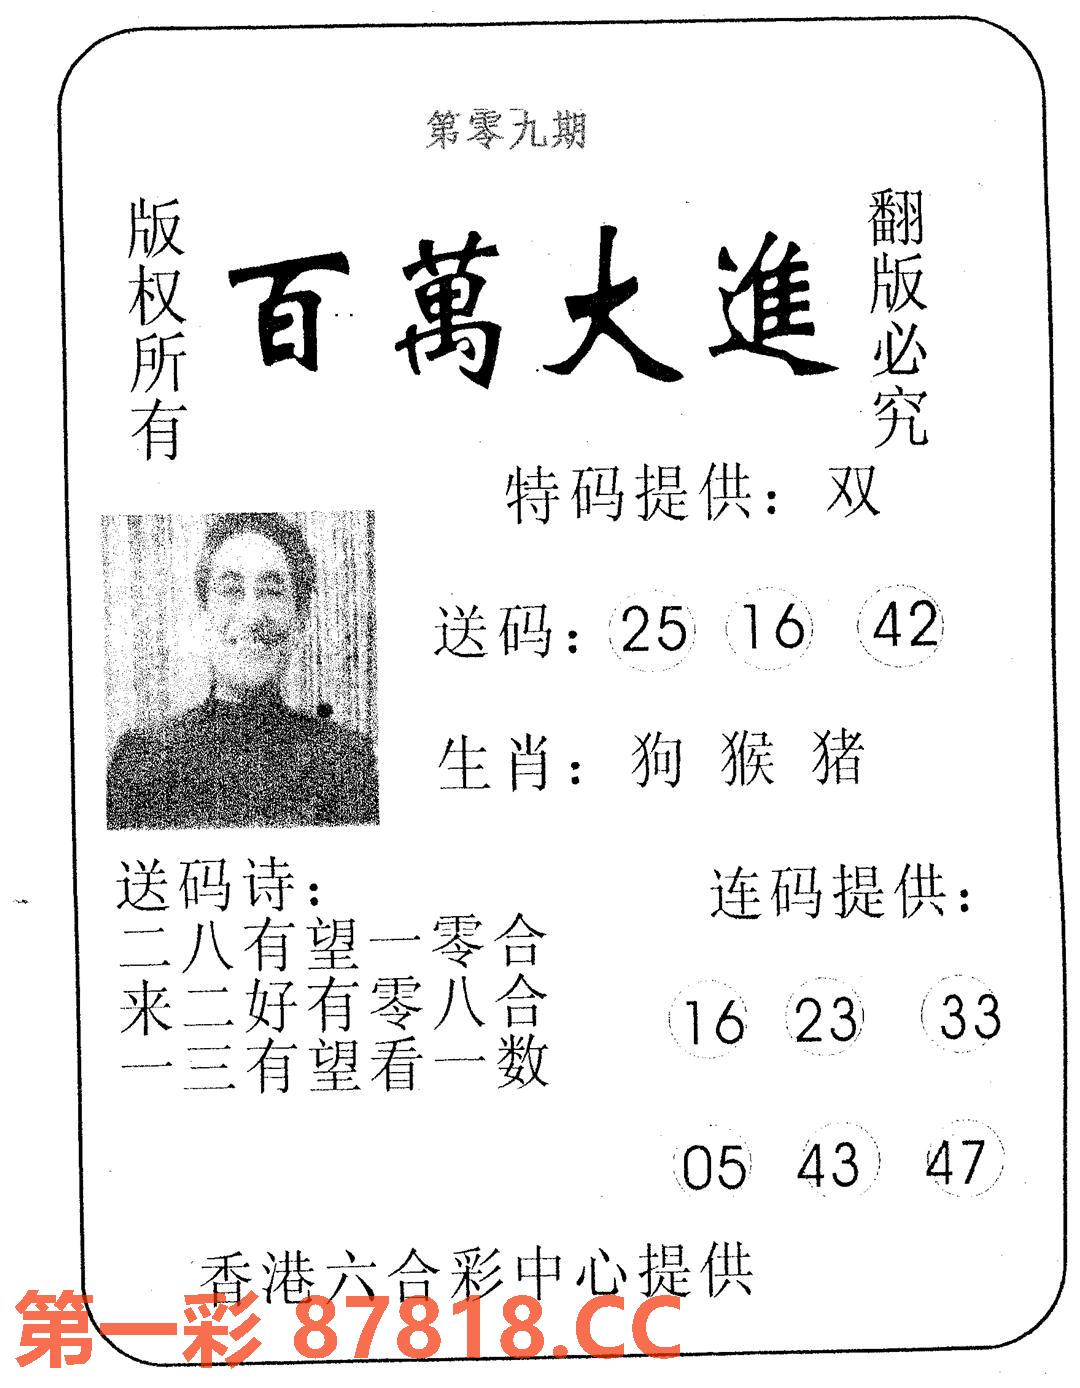 第零九期
版权所有
百萬大進
翻版必究
特码提供：双
送码：25 16 42
生肖：狗 猴 猪
送码诗：
二八有望一零合
来二好有零八合
一三有望看一数
连码提供：
16 23 33
05 43 47
香港六合彩中心提供
第一彩 87818.CC